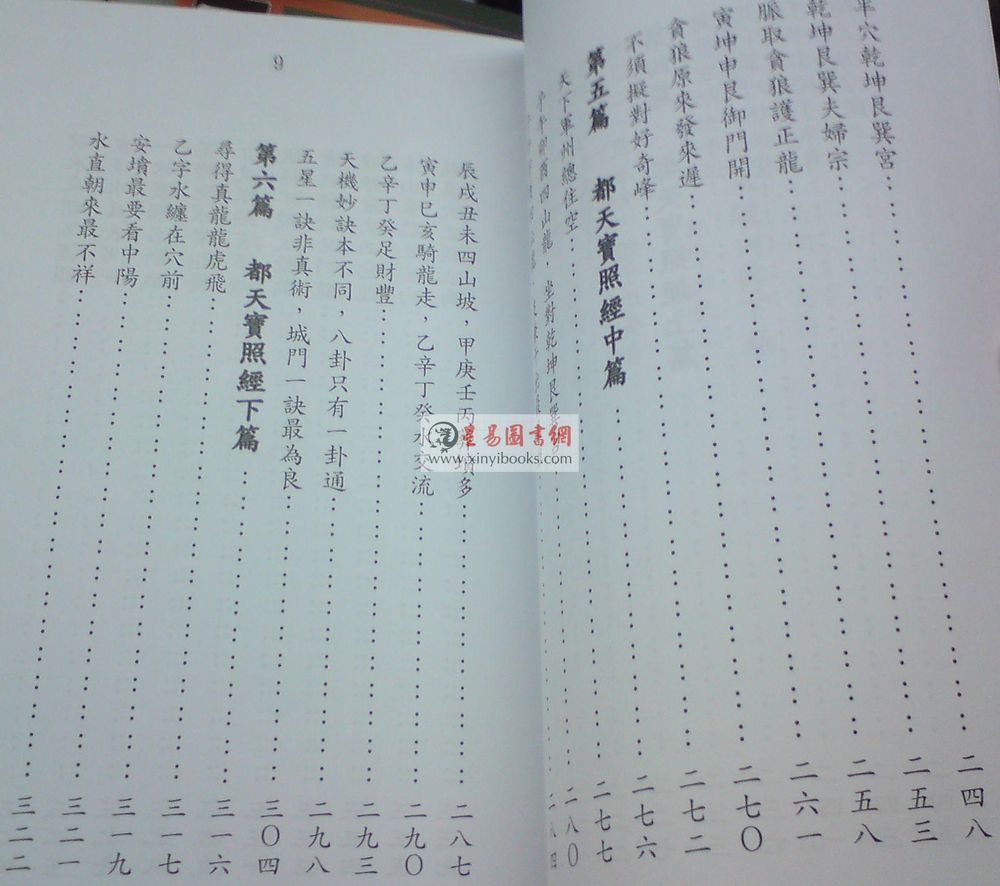 穴乾坤艮巽宮……二四八
乾坤艮巽夫婦宗……二五三
脈取貪狼護正龍……二五八
寅坤申艮御門開……二六一
貪狼原來發來遲……二七〇
不須擬對好奇峰……二七二
第五篇 都天寶照經中篇……二七六
天下軍州總住空……二七七
卯酉四山龍，坐對乾坤艮……二八〇
二八四
9
辰戌丑未四山坡，甲庚壬丙墳多……二八七
寅申巳亥騎龍走，乙辛丁癸水交流……二九〇
乙辛丁癸足財豐……二九三
天機妙訣本不同，八卦只有一卦通……二九八
五星一訣非真術，城門一訣最為良……三〇四
第六篇 都天寶照經下篇……三一六
尋得真龍龍虎飛……三一七
乙字水纏在穴前……三一九
安墳最要看中陽……三二一
水直朝來最不祥……三二二
星易圖書網
www.xinyibooks.com